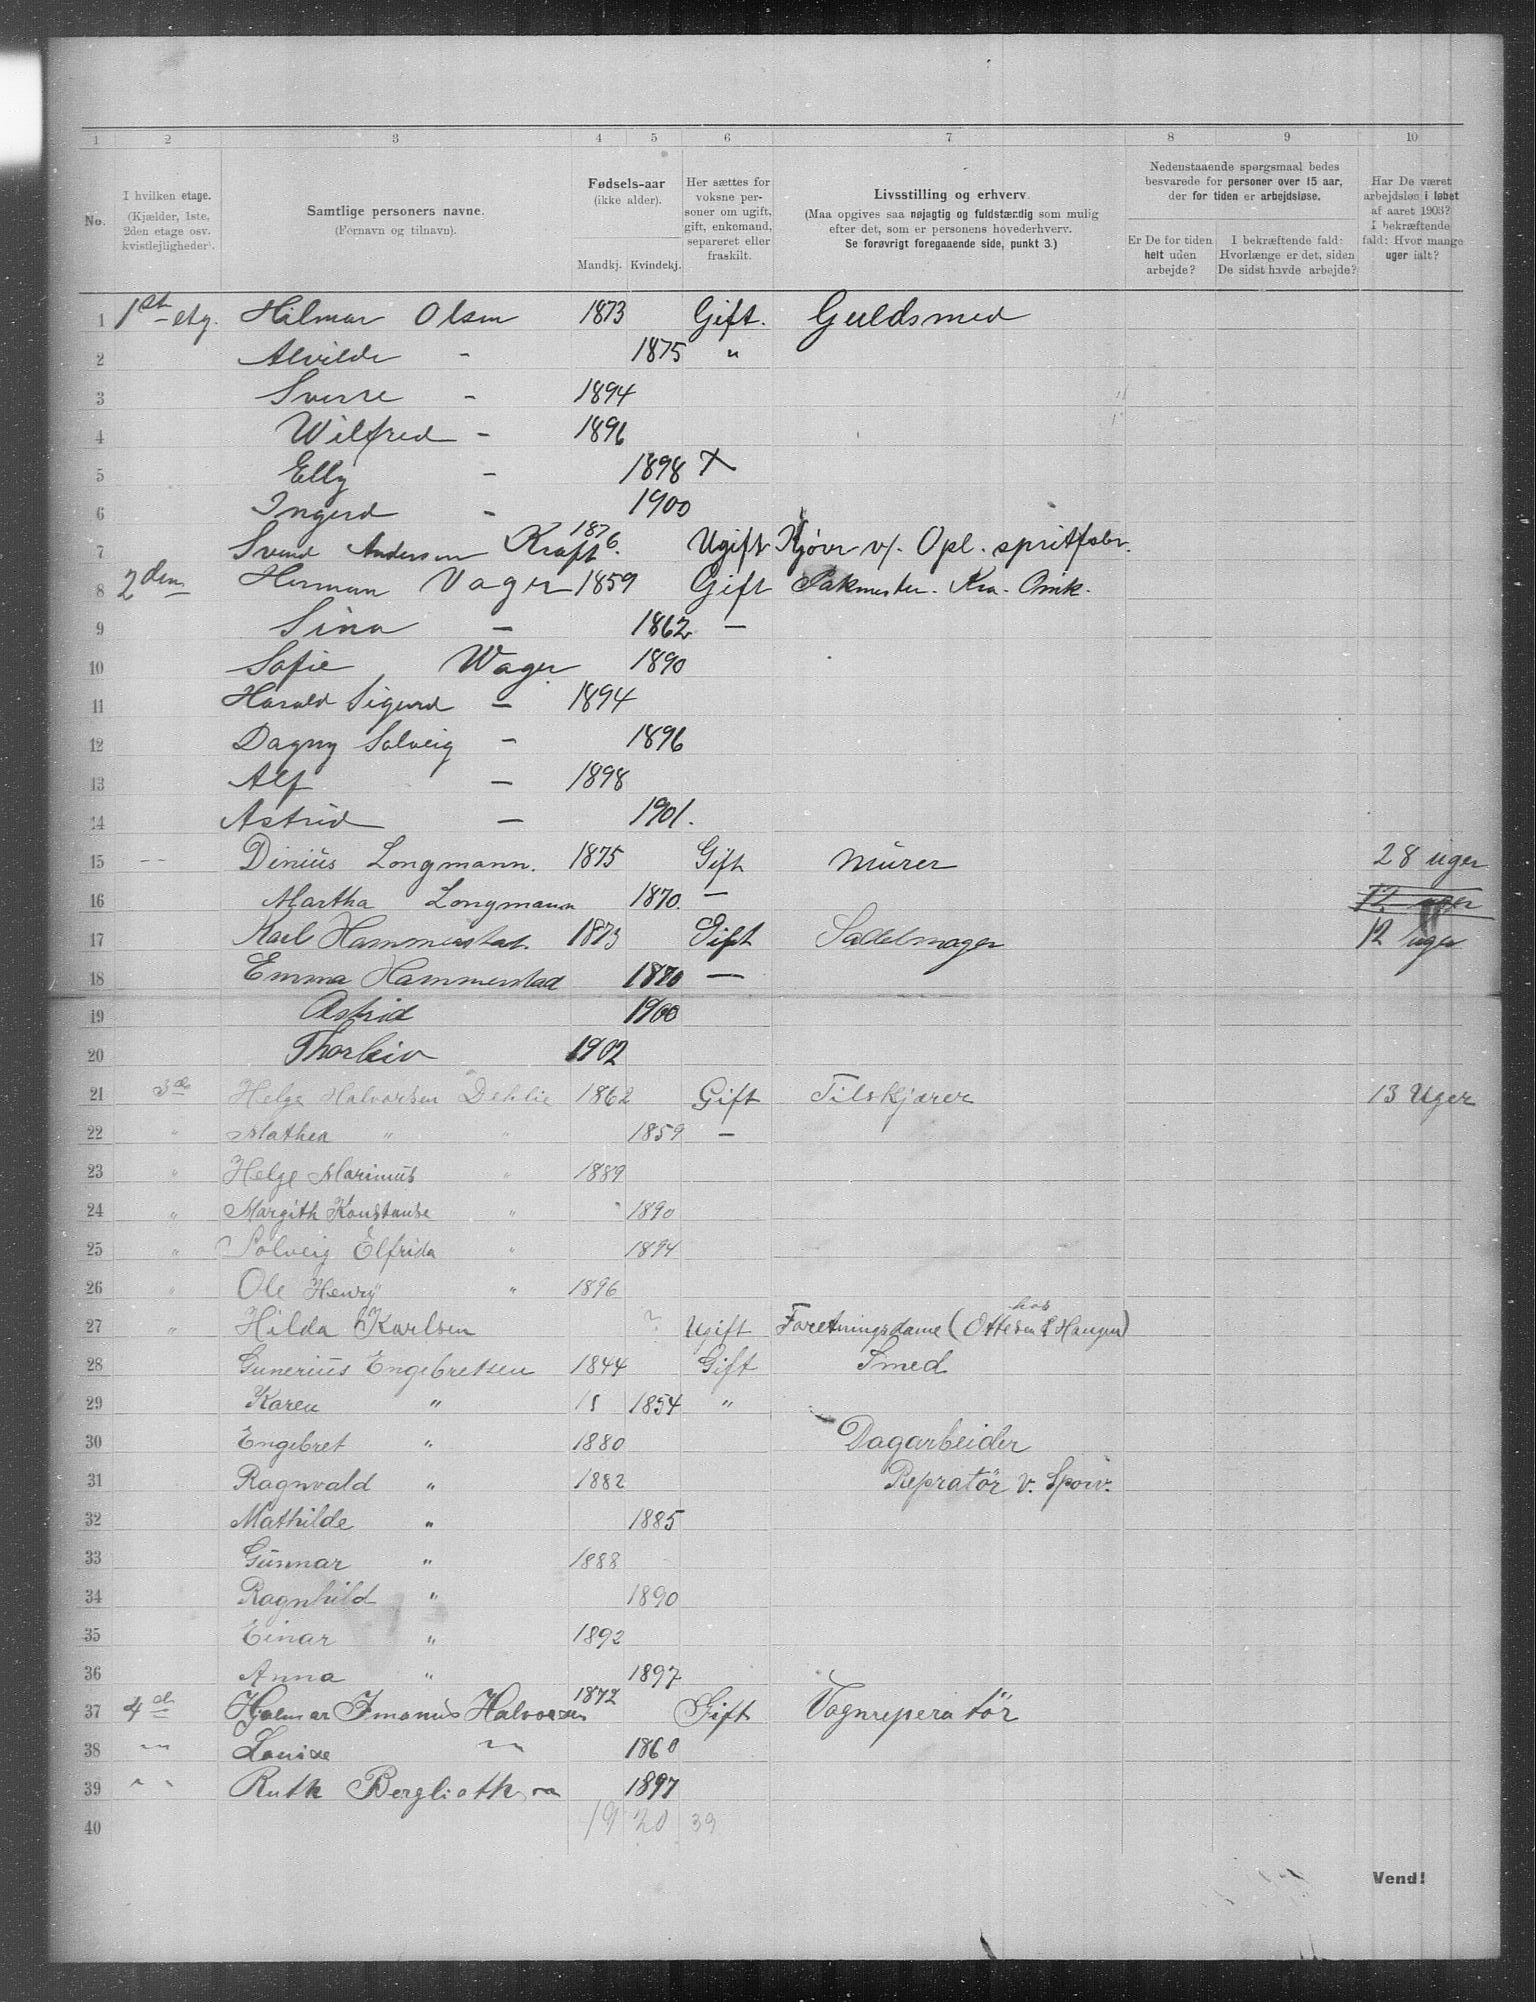 1 2 3 4 5 6 7 8 9 10
No.
I hvilken etage. (Kjælder, 1ste, 2den etage osv. kvistlejligheder).
Samtlige personers navne. (Fornavn og tilnavn).
Fødsels-aar (ikke alder).
Mandkj. Kvindekj.
Her sættes for voksne personer om ugift, gift, enkemand, separeret eller fraskilt.
Livsstilling og erhverv.
(Maa opgives saa nøjagtig og fuldstærdig som mulig efter det, som er personens hovederhverv.
Se forøvrigt foregaaende side, punkt 3.)
Nedenstaaende spørgsmaal bedes besvarede for personer over 15 aar, der for tiden er arbejdsløse.
Er De for tiden helt uden arbejde?
I bekræftende fald: Hvorlænge er det, siden De sidst havde arbejde?
Har De været arbejdsløs i løbet af aaret 1903? I bekræftende fald: Hvor mange uger ialt?
1 1st etg. Hilmar Olsen 1873 Gift. Guldsmed
2 Alvilde - 1875 "
3 Sverre - 1894
4 Wilfred - 1896
5 Elly - 1898 X
6 Ingerd - 1900
7 Svend Andersen Kraft. 1876 Ugift Kjører v/. Opl. spritfabr.
8 2den Herman Vager 1859 Gift Pakmester. Kra. Omk.
9 Sina - 1862 -
10 Sofie Wager 1890
11 Harald Sigurd - 1894
12 Dagny Solveig - 1896
13 Alf - 1898
14 Astrid - 1901.
15 -- Dinius Longmann. 1875 Gift Murer 28 uger
16 Martha Longmann 1870. - 12 uger
17 Karl Hammerstad 1873 Gift Sadelmager 12 uger
18 Emma Hammerstad 1870 -
19 Astrid 1900
20 Thorleiv 1902
21 3de Helge Halvorsen Dehlie 1862 Gift Tilskjærer 13 Uger
22 " Mathea " " 1859 -
23 " Helge Marinius " 1889
24 " Margith Konstanse " 1890
25 " Solveig Elfrida " 1894
26 " Ole Henry " 1896
27 " Hilda Karlsen ? Ugift Foretningsdame (hos Ottesen & Haugen)
28 Gunerius Engebretsen 1844 Gift Smed
29 Karen " 1854 "
30 Engebret " 1880 Dagarbeider
31 Ragnvald " 1882 Repratør v. Sporv.
32 Mathilde " 1885
33 Gunnar " 1888
34 Ragnhild " 1890
35 Einar " 1892
36 Anna " 1897
37 4d Hjalmar Imanus Halvorsen 1872 Gift Vognreperatör
38 -"- Louise -"- 1860
39 " " Ruth Berglioth -"- 1897
40 19 20 39
Vend!